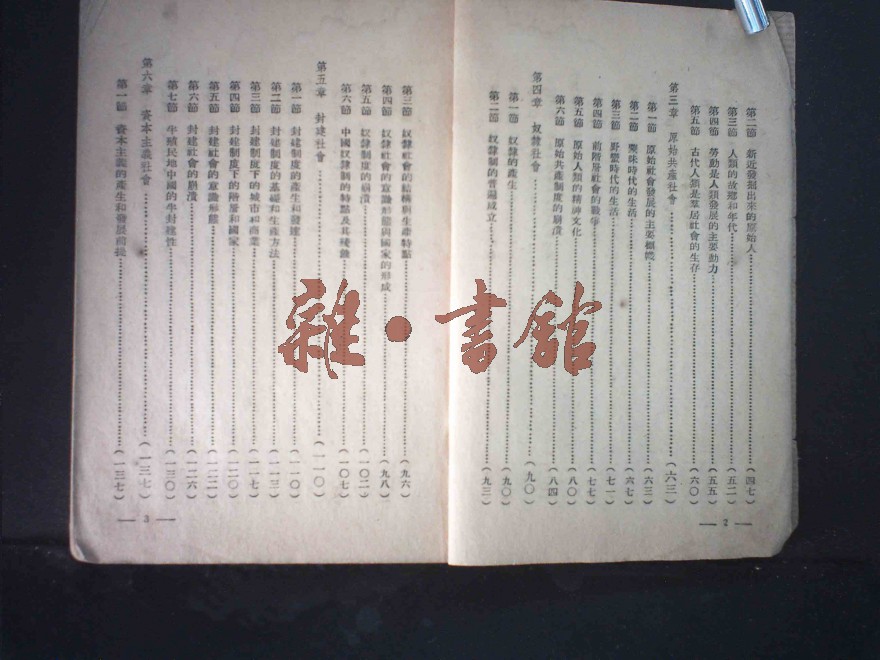 第二節 新近發掘出來的原始人…………(四七)
第三節 人類的故鄉和年代…………(五二)
第四節 勞動是人類發展的主要動力…………(五五)
第五節 古代人類是羣居社會的生存…………(六〇)
第三章 原始共產社會…………(六三)
第一節 原始社會發展的主要概況…………(六三)
第二節 蒙昧時代的生活…………(六七)
第三節 野蠻時代的生活…………(七一)
第四節 前階級社會的戰爭…………(七七)
第五節 原始人類的精神文化…………(八〇)
第六節 原始共產制度的崩潰…………(八四)
第四章 奴隸社會…………(九〇)
第一節 奴隸的產生…………(九〇)
第二節 奴隸制的普遍成立…………(九三)
— 2 —
第三節 奴隸社會的結構與生產特點…………(九六)
第四節 奴隸社會的意識形態與國家的形成…………(九八)
第五節 奴隸制度的崩潰…………(一〇二)
第六節 中國奴隸制的特點及其殘餘…………(一〇七)
第五章 封建社會…………(一一〇)
第一節 封建制度的產生和發達…………(一一〇)
第二節 封建制度的基礎和生產方法…………(一一三)
第三節 封建制度下的城市和商業…………(一一七)
第四節 封建制度下的階級和國家…………(一二〇)
第五節 封建社會的意識形態…………(一二二)
第六節 封建社會的崩潰…………(一二六)
第七節 半殖民地中國的半封建性…………(一三〇)
第六章 資本主義社會…………(一三七)
第一節 資本主義的產生和發展前提…………(一三七)
— 3 —
雜·書舘